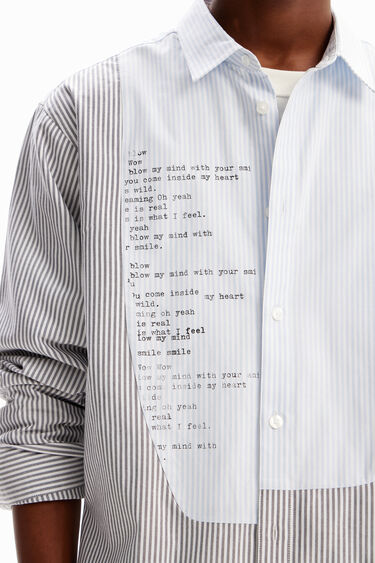 blow
Wow
blow my mind with your smi
you come inside my heart
s wild.
eaming Oh yeah
e is real
s is what I feel.
yeah
blow my mind with
r smile.
blow
blow my mind with your smi
u
u come inside my heart
wild.
ming oh yeah
is real
is what I feel
low my mind
smile smile
Wow Wow
low my mind with your smi
u come inside my heart
ing oh yeah
real
what I feel.
my mind with
.